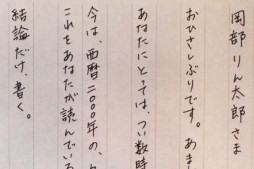 岡部りん太郎さま
おひさしぶりです。あまり
あなたにとっては、つい数時
今は、西暦二〇〇〇年の、
これをあなたが読んでいる
結論だけ、書く。